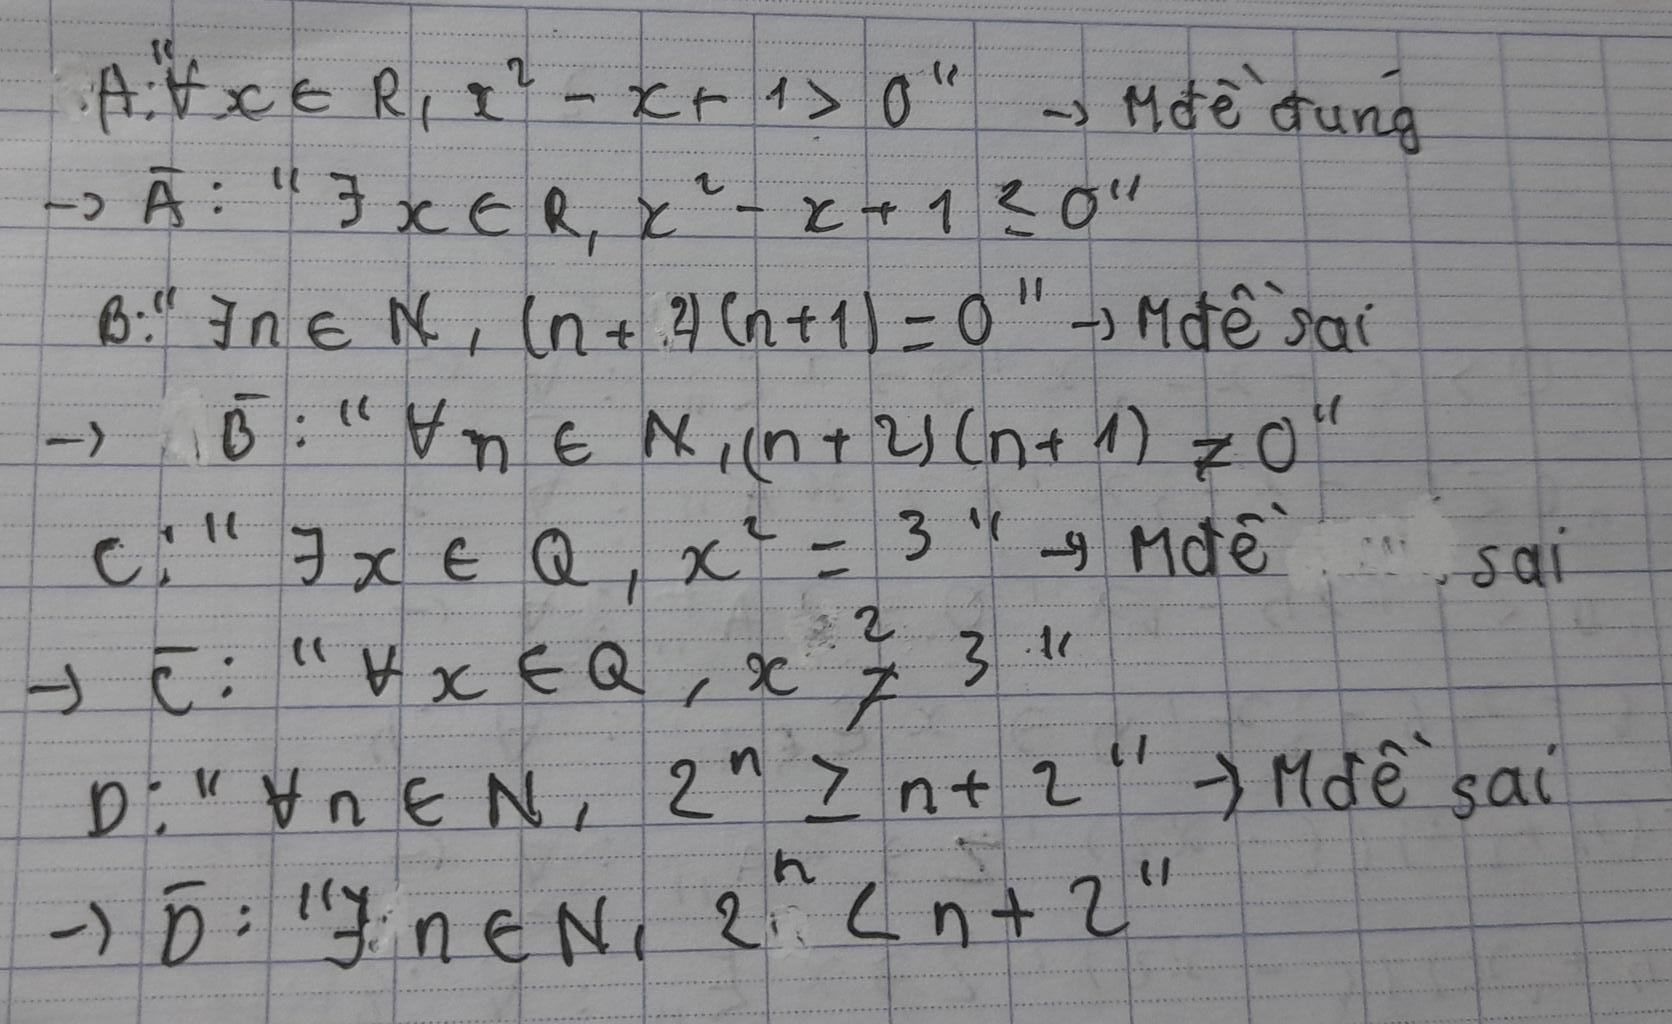 A: "∀ x ∈ R, x² - x + 1 > 0" → Mđề đúng
→ A̅ : "∃ x ∈ R, x² - x + 1 ≤ 0"
B: "∃ n ∈ N, (n + 2)(n+1) = 0" → Mđề sai
→ B̅ : "∀ n ∈ N, (n + 2)(n + 1) ≠ 0"
C: "∃ x ∈ Q, x² = 3" → Mđề sai
→ C̅ : "∀ x ∈ Q, x² ≠ 3"
D: "∀ n ∈ N, 2ⁿ ≥ n + 2" → Mđề sai
→ D̅ : "∃ n ∈ N, 2ⁿ < n + 2"